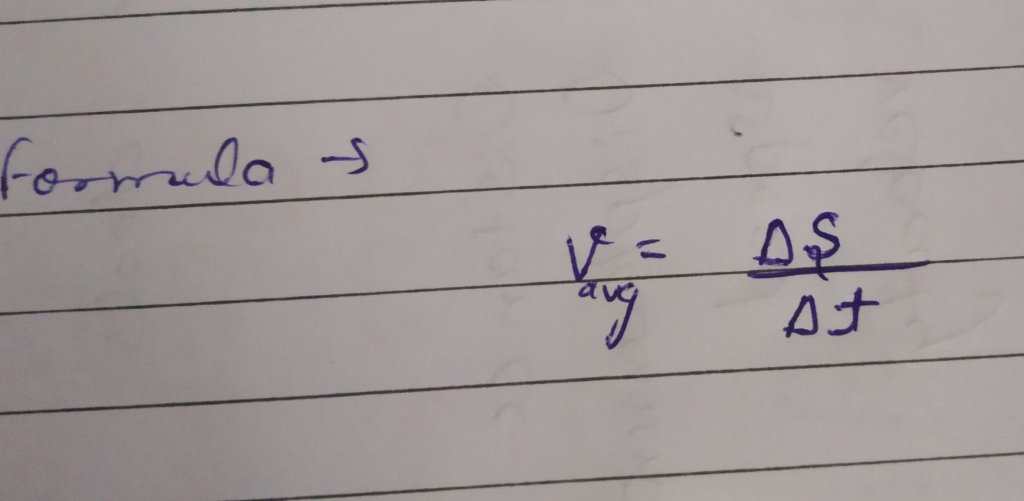 Formula →
V avg = ΔS / Δt